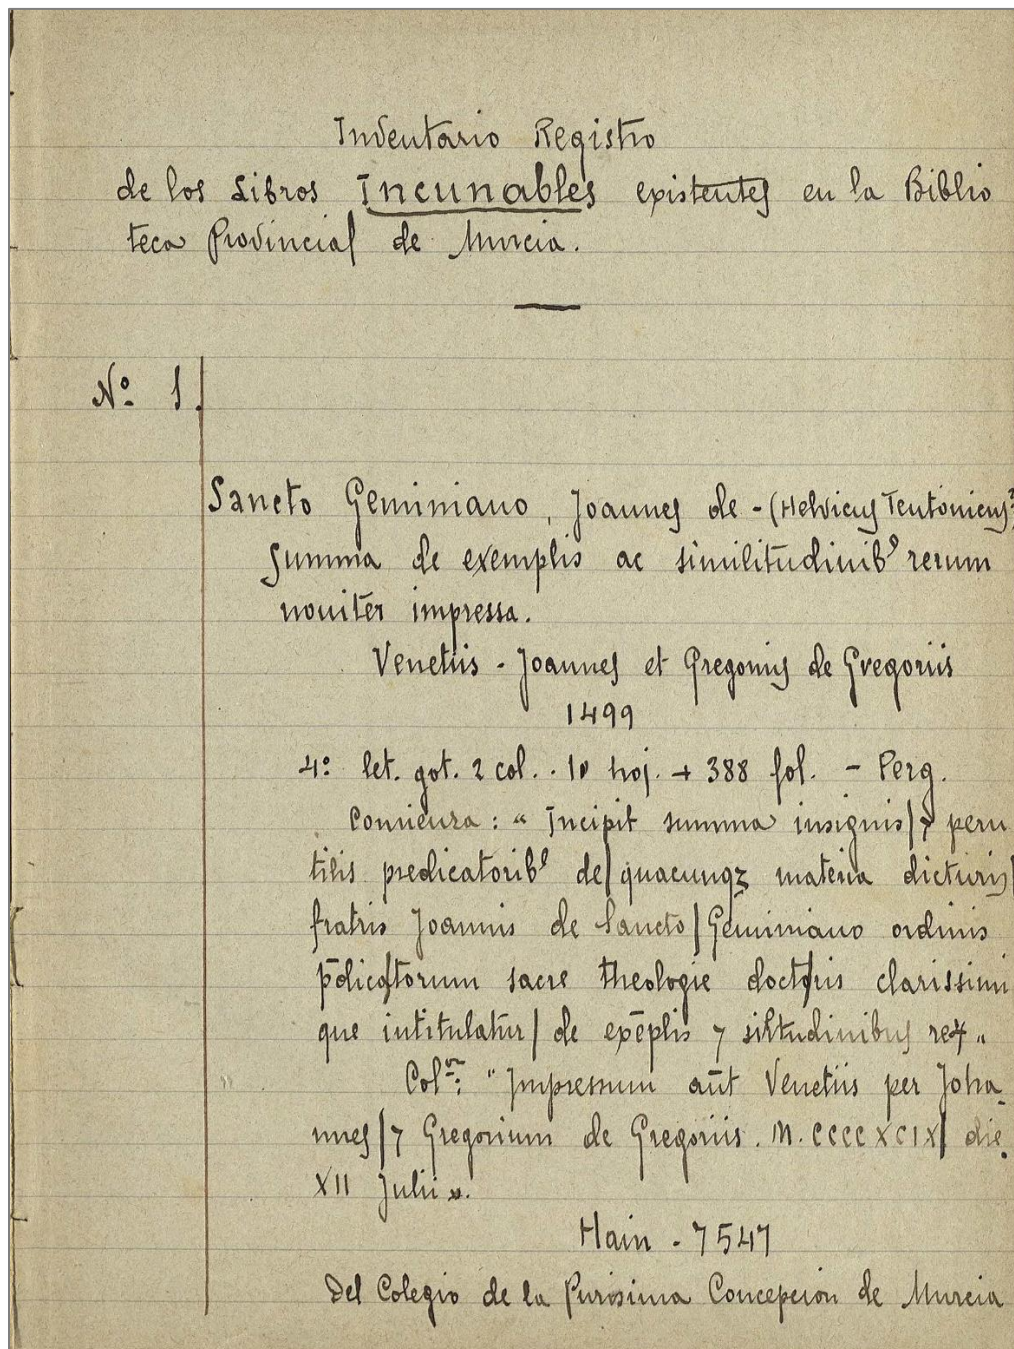 Inventario Registro
de los Libros Incunables existentes en la Biblio
teca Provincial de Murcia.
Nº 1.
Sancto Geminiano, Joannes de - (Helvicus Teutonicus?
Summa de exemplis ac similitudinibꝰ rerum
noviter impressa.
Venetiis - Joannes et Gregorius de Gregoriis
1499
4º let. got. 2 col. . 10 hoj. + 388 fol. - Perg.
Comienza: "Incipit summa insignis/⁊ peru
tilis predicatoribꝰ de/quacunqz materia dicturis/
fratris Joannis de Sancto/Geminiano ordinis
p̄dicatorum sacre theologie doctoris clarissimi
que intitulatur/de exēplis ⁊ siltudinibus reꝝ"
Colⁿ: "Impressum aūt Venetiis per Joha-
nnes/⁊ Gregorium de Gregoriis. M.CCCCXCIX/ die.
XII Julii".
Hain - 7547
Del Colegio de la Purísima Concepción de Murcia